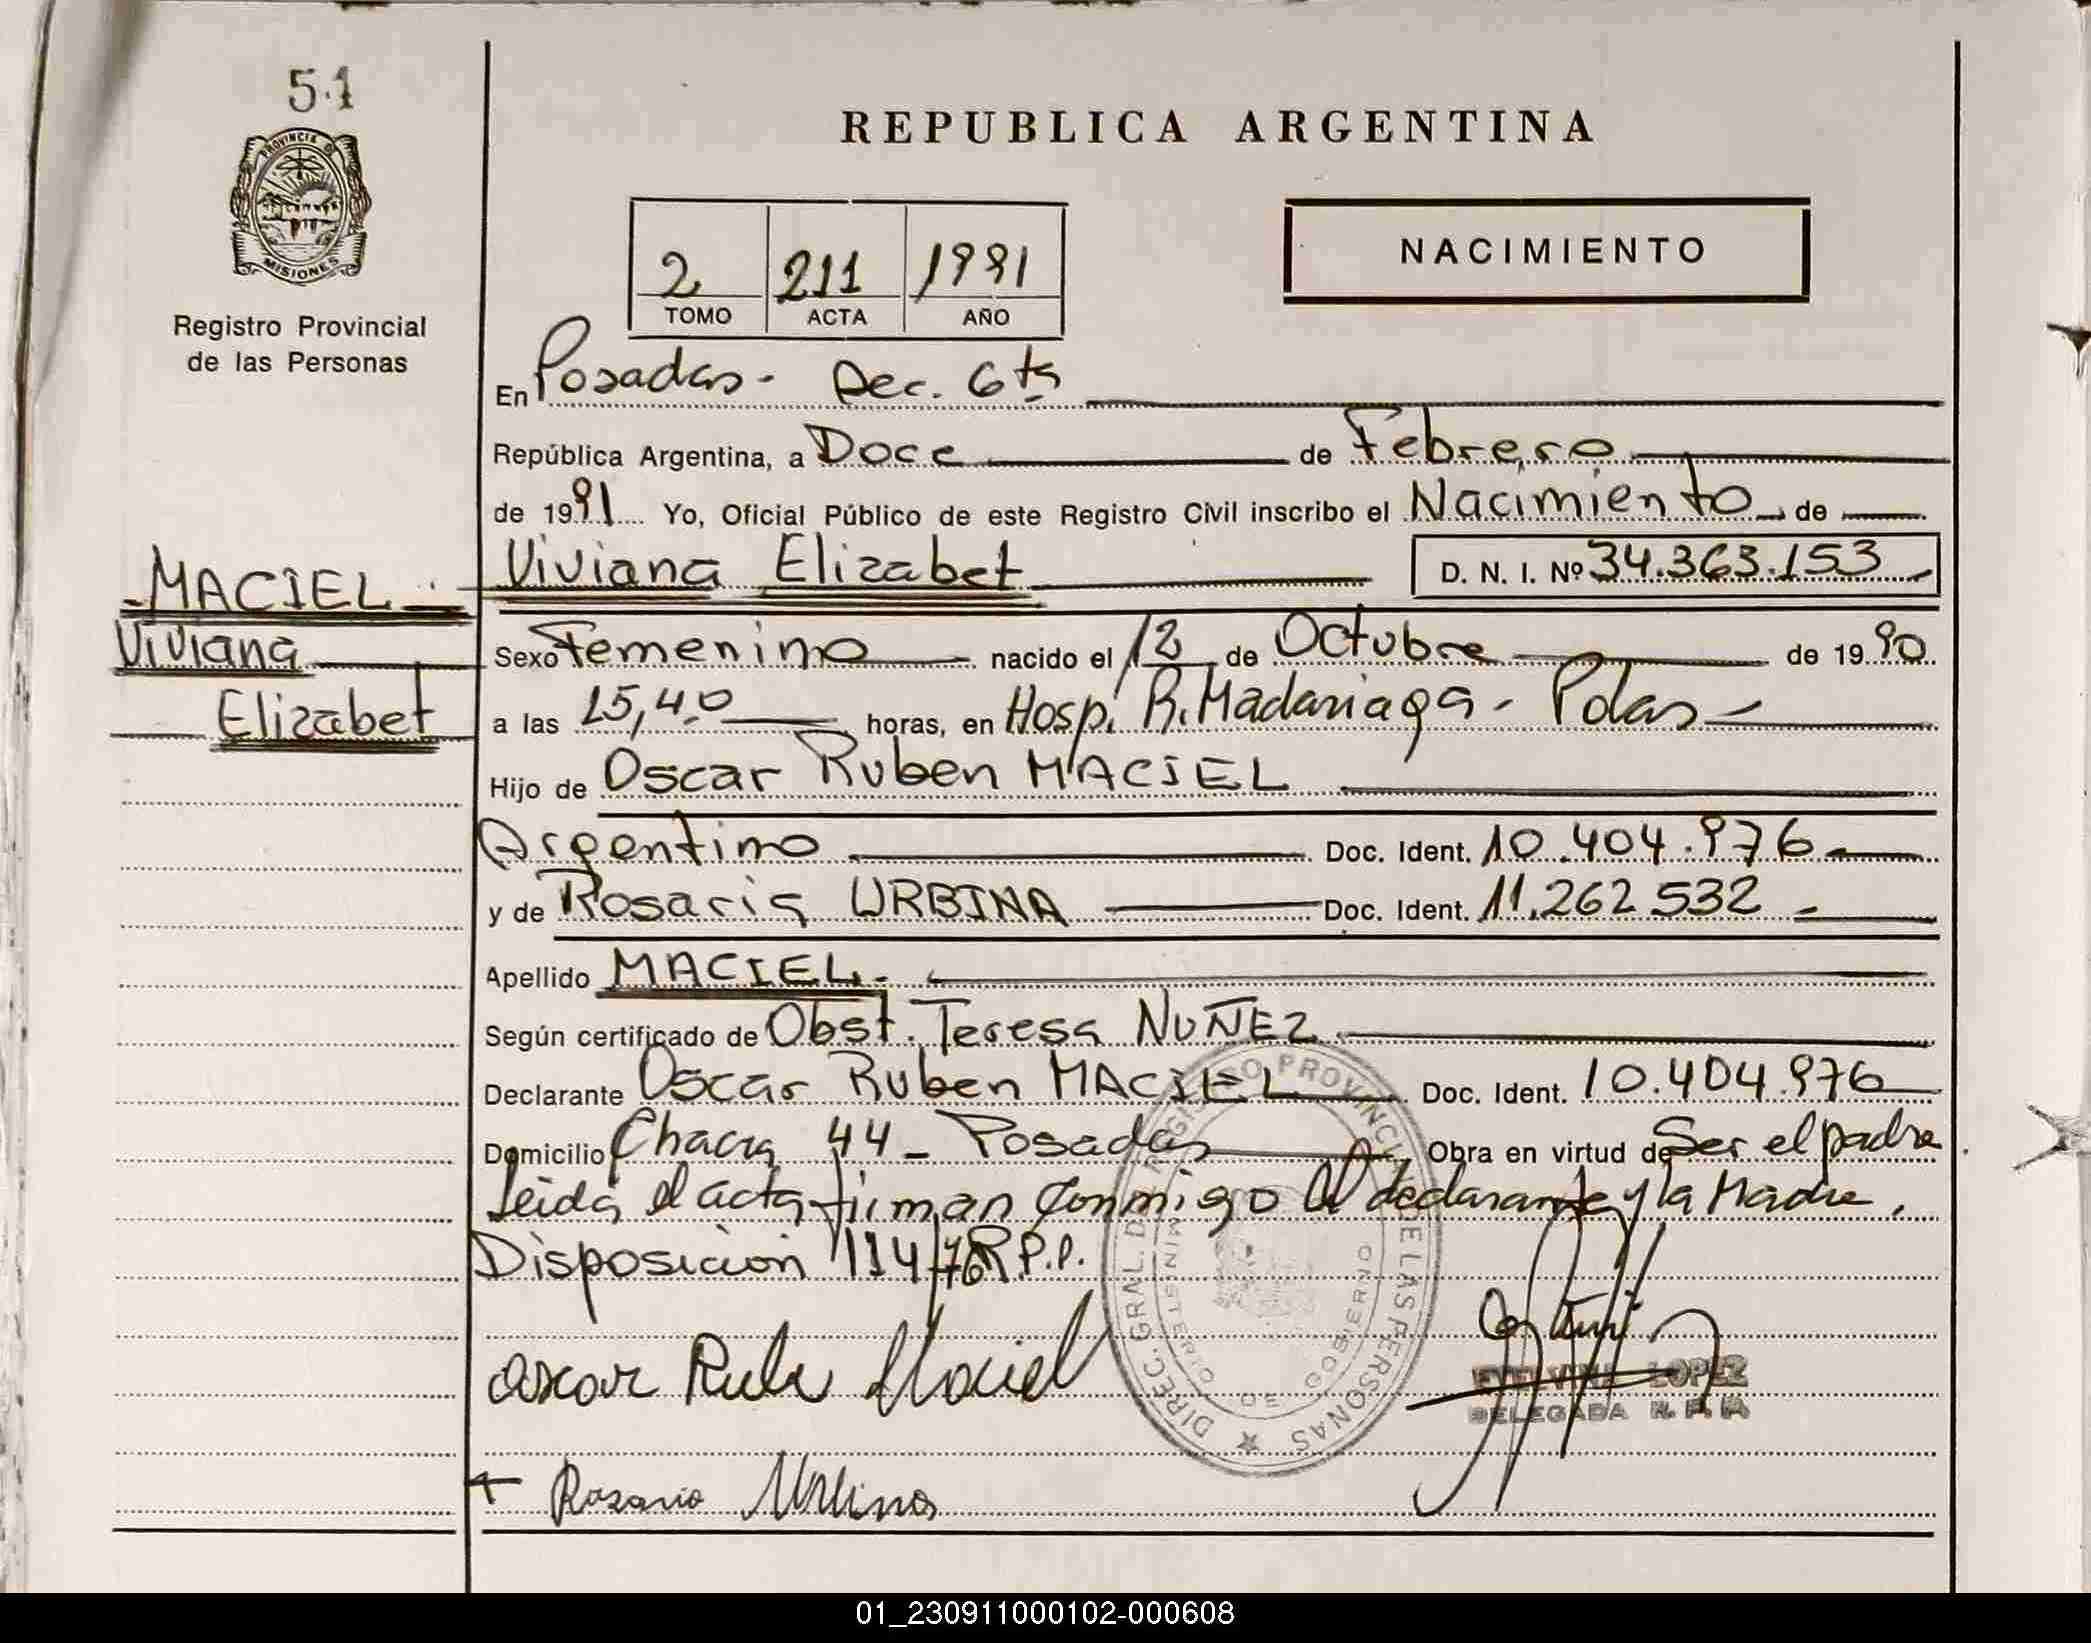 51
PROVINCIA DE
MISIONES
Registro Provincial
de las Personas
REPUBLICA ARGENTINA
2 211 1991
TOMO ACTA AÑO
NACIMIENTO
En Posadas - Sec. 6ta
República Argentina, a Doce de Febrero
de 1991 Yo, Oficial Público de este Registro Civil inscribo el Nacimiento de
Viviana Elizabet D. N. I. Nº 34.363.153
MACIEL
Viviana
Elizabet
Sexo Femenino nacido el 12 de Octubre de 1990
a las 15,40 horas, en Hosp. R. Madariaga - Pdas
Hijo de Oscar Ruben MACIEL
Argentino Doc. Ident. 10.404.976
y de Rosaria URBINA Doc. Ident. 11.262 532
Apellido MACIEL
Según certificado de Obst. Teresa NUÑEZ
Declarante Oscar Ruben MACIEL Doc. Ident. 10.404.976
Domicilio Chacra 44 - Posadas Obra en virtud de Ser el padre
Leida el acta firman conmigo el declarante y la Madre.
Disposicion 114/76 R.P.P.
DIREC. GRAL. DEL REGISTRO PROVINCIAL DE LAS PERSONAS
MINISTERIO DE GOBIERNO
Oscar Rube Maciel
LOPEZ
DELEGADA R. P. P.
Rosario Urbina
01_230911000102-000608